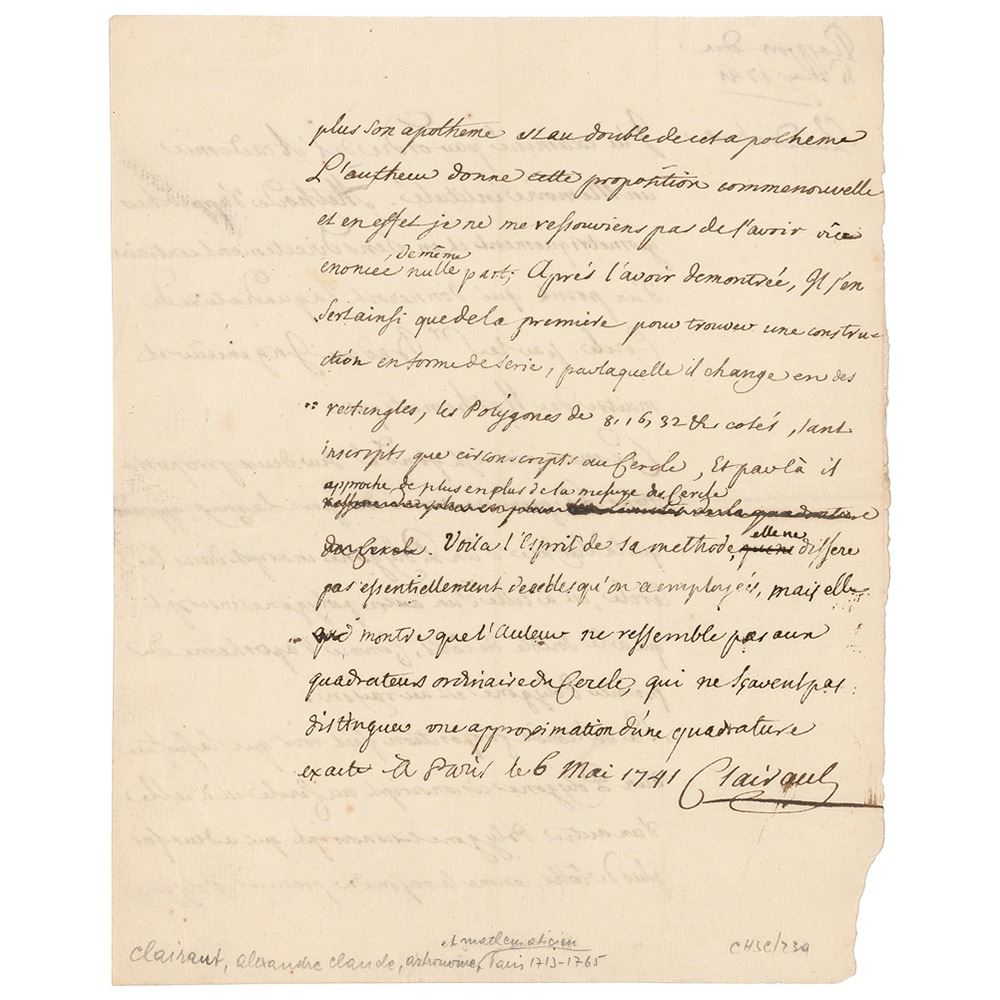 plus son apotheme est au double de cet apotheme
L'autheur donne cette proposition comme nouvelle
et en effet je ne me ressouviens pas de l'avoir vüe
de même
enoncée nulle part; Aprés l'avoir demontrée, Il s'en
sert ainsi que de la premiere pour trouver une constru-
ction en forme de serie, par laquelle il change en des
rectangles, les Polygones de 8, 16, 32 &c cotés, tant
inscripts que circonscripts au Cercle, Et par là il
approche de plus en plus de la mesure du Cercle
de la quadrature
du Cercle. Voila l'Esprit de sa methode, elle ne differe
pas essentiellement de celles qu'on a employées, mais elle
montre que l'Auteur ne ressemble pas aux
quadrateurs ordinaires du Cercle, qui ne sçavent pas
distinguer une approximation d'une quadrature
exacte A Paris le 6 Mai 1741 Clairaut
et mathematicien
Clairaut, alexandre claude, astronome, Paris 1713-1765